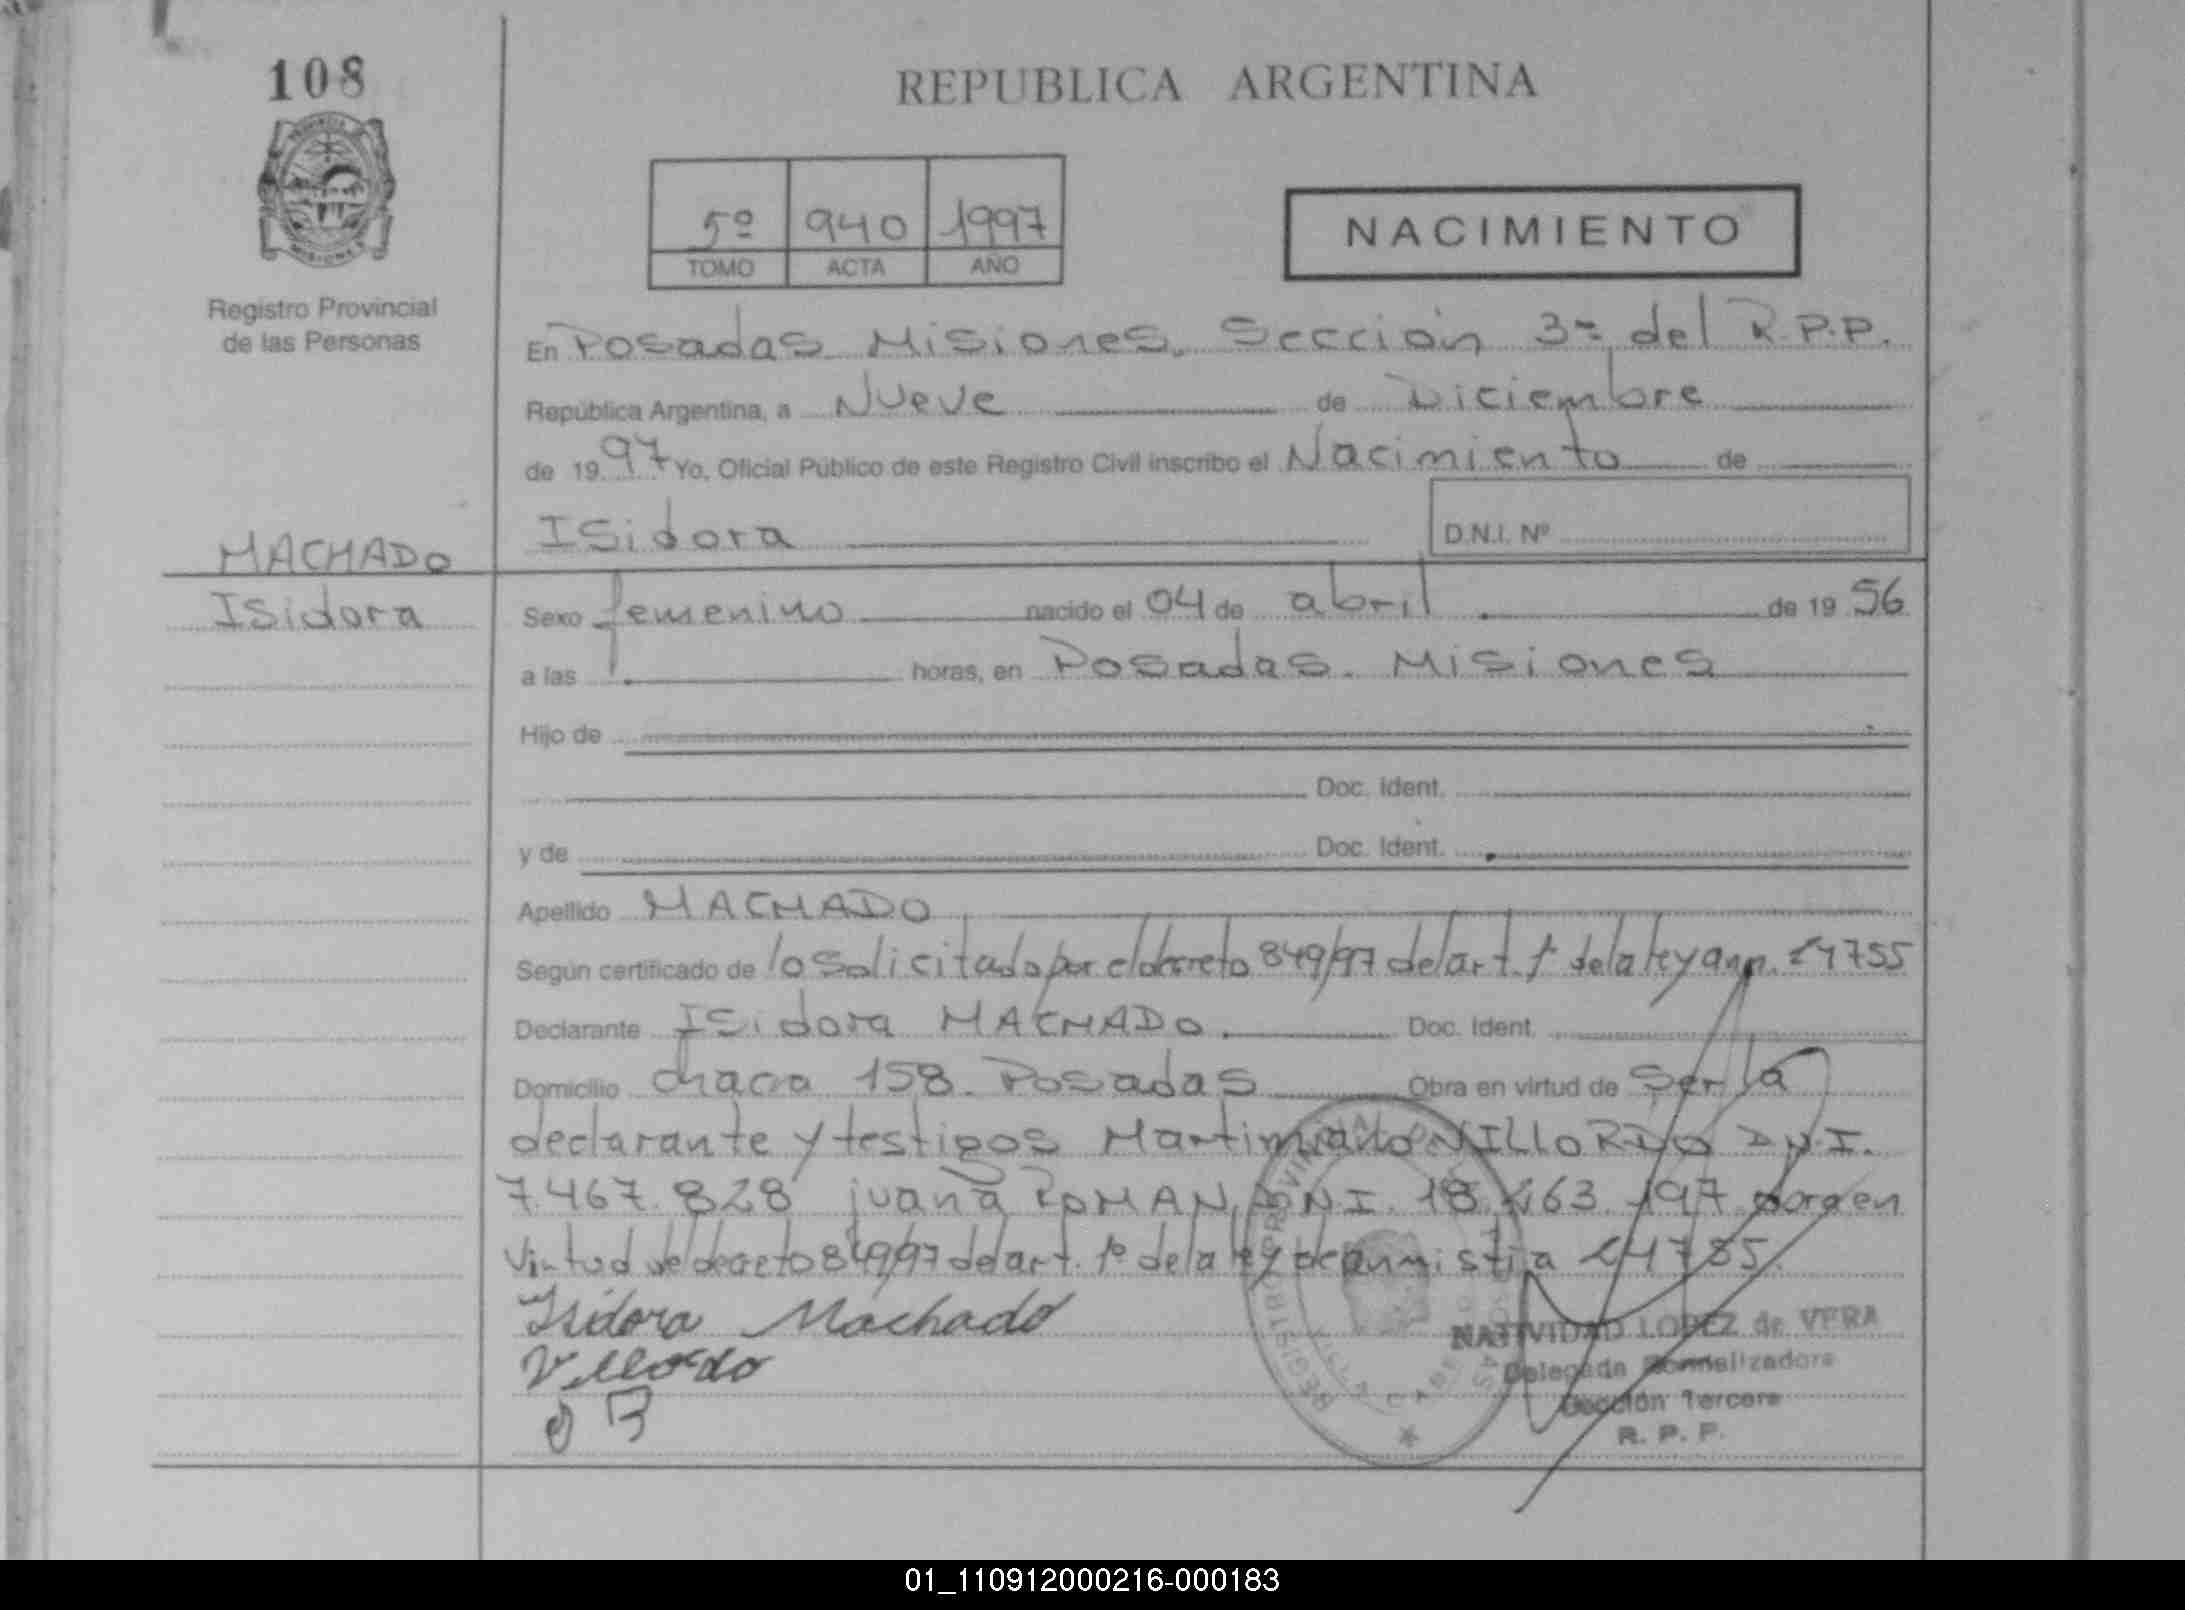 108
REPUBLICA ARGENTINA
5º 940 1997
TOMO ACTA AÑO
NACIMIENTO
Registro Provincial
de las Personas
En Posadas Misiones. Sección 3ª del R.P.P.
República Argentina, a Nueve de Diciembre
de 19 97 Yo, Oficial Público de este Registro Civil inscribo el Nacimiento de
MACHADO
Isidora
Isidora D.N.I. Nº
Sexo femenino nacido el 04 de abril de 19 56
a las horas, en Posadas. Misiones
Hijo de
Doc. Ident.
y de Doc. Ident.
Apellido MACHADO
Según certificado de lo solicitado por el decreto 849/97 del art. 1º de la ley 24755
Declarante Isidora MACHADO. Doc. Ident.
Domicilio chacra 158. Posadas Obra en virtud de ser la
declarante y testigos Martimiano VILLORDO D.N.I.
7.467.828 juana ROMAN, DNI. 18.463.197 en
virtud del decreto 849/97 del art. 1º de la ley de anmistia 24785.
Isidora Machado
Villordo
NATIVIDAD LOPEZ de VERA
Delegada
Sección Tercera
R. P. P.
01_110912000216-000183